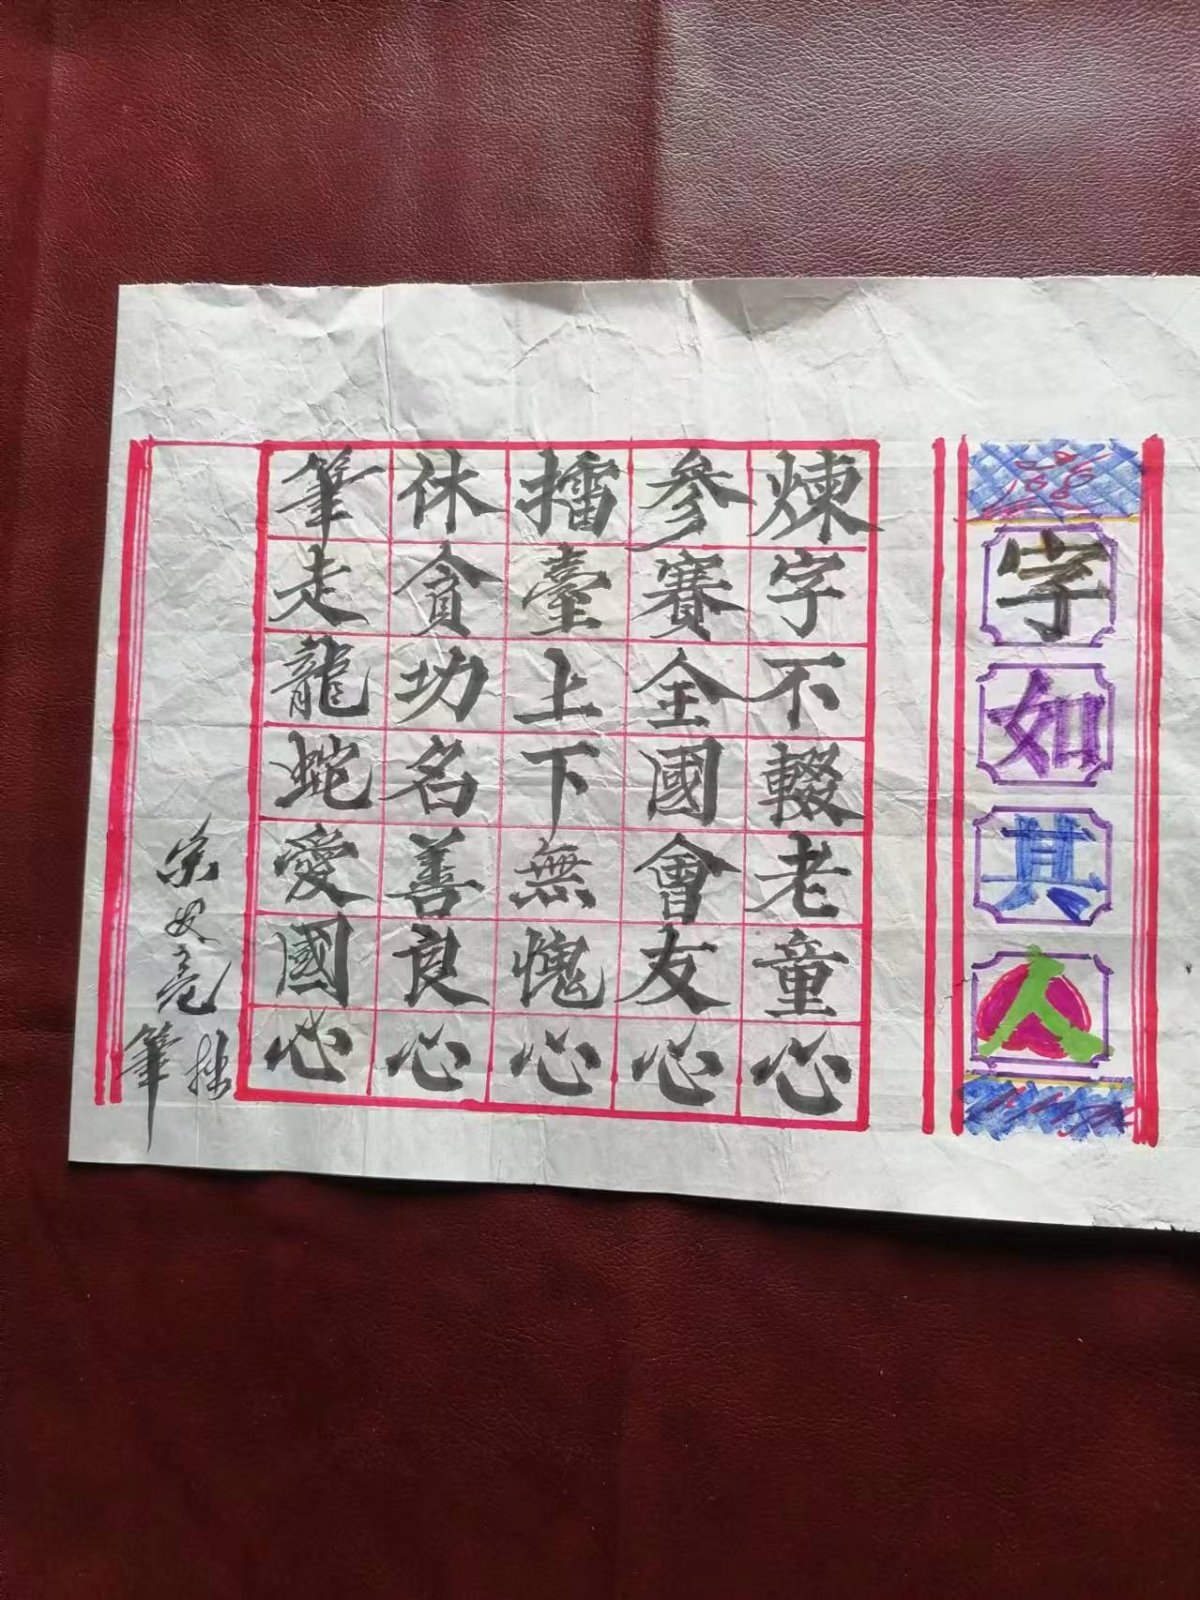 字如其人
煉字不輟老童心
參賽全國會友心
擂臺上下無愧心
休貪功名善良心
筆走龍蛇愛國心
拙筆